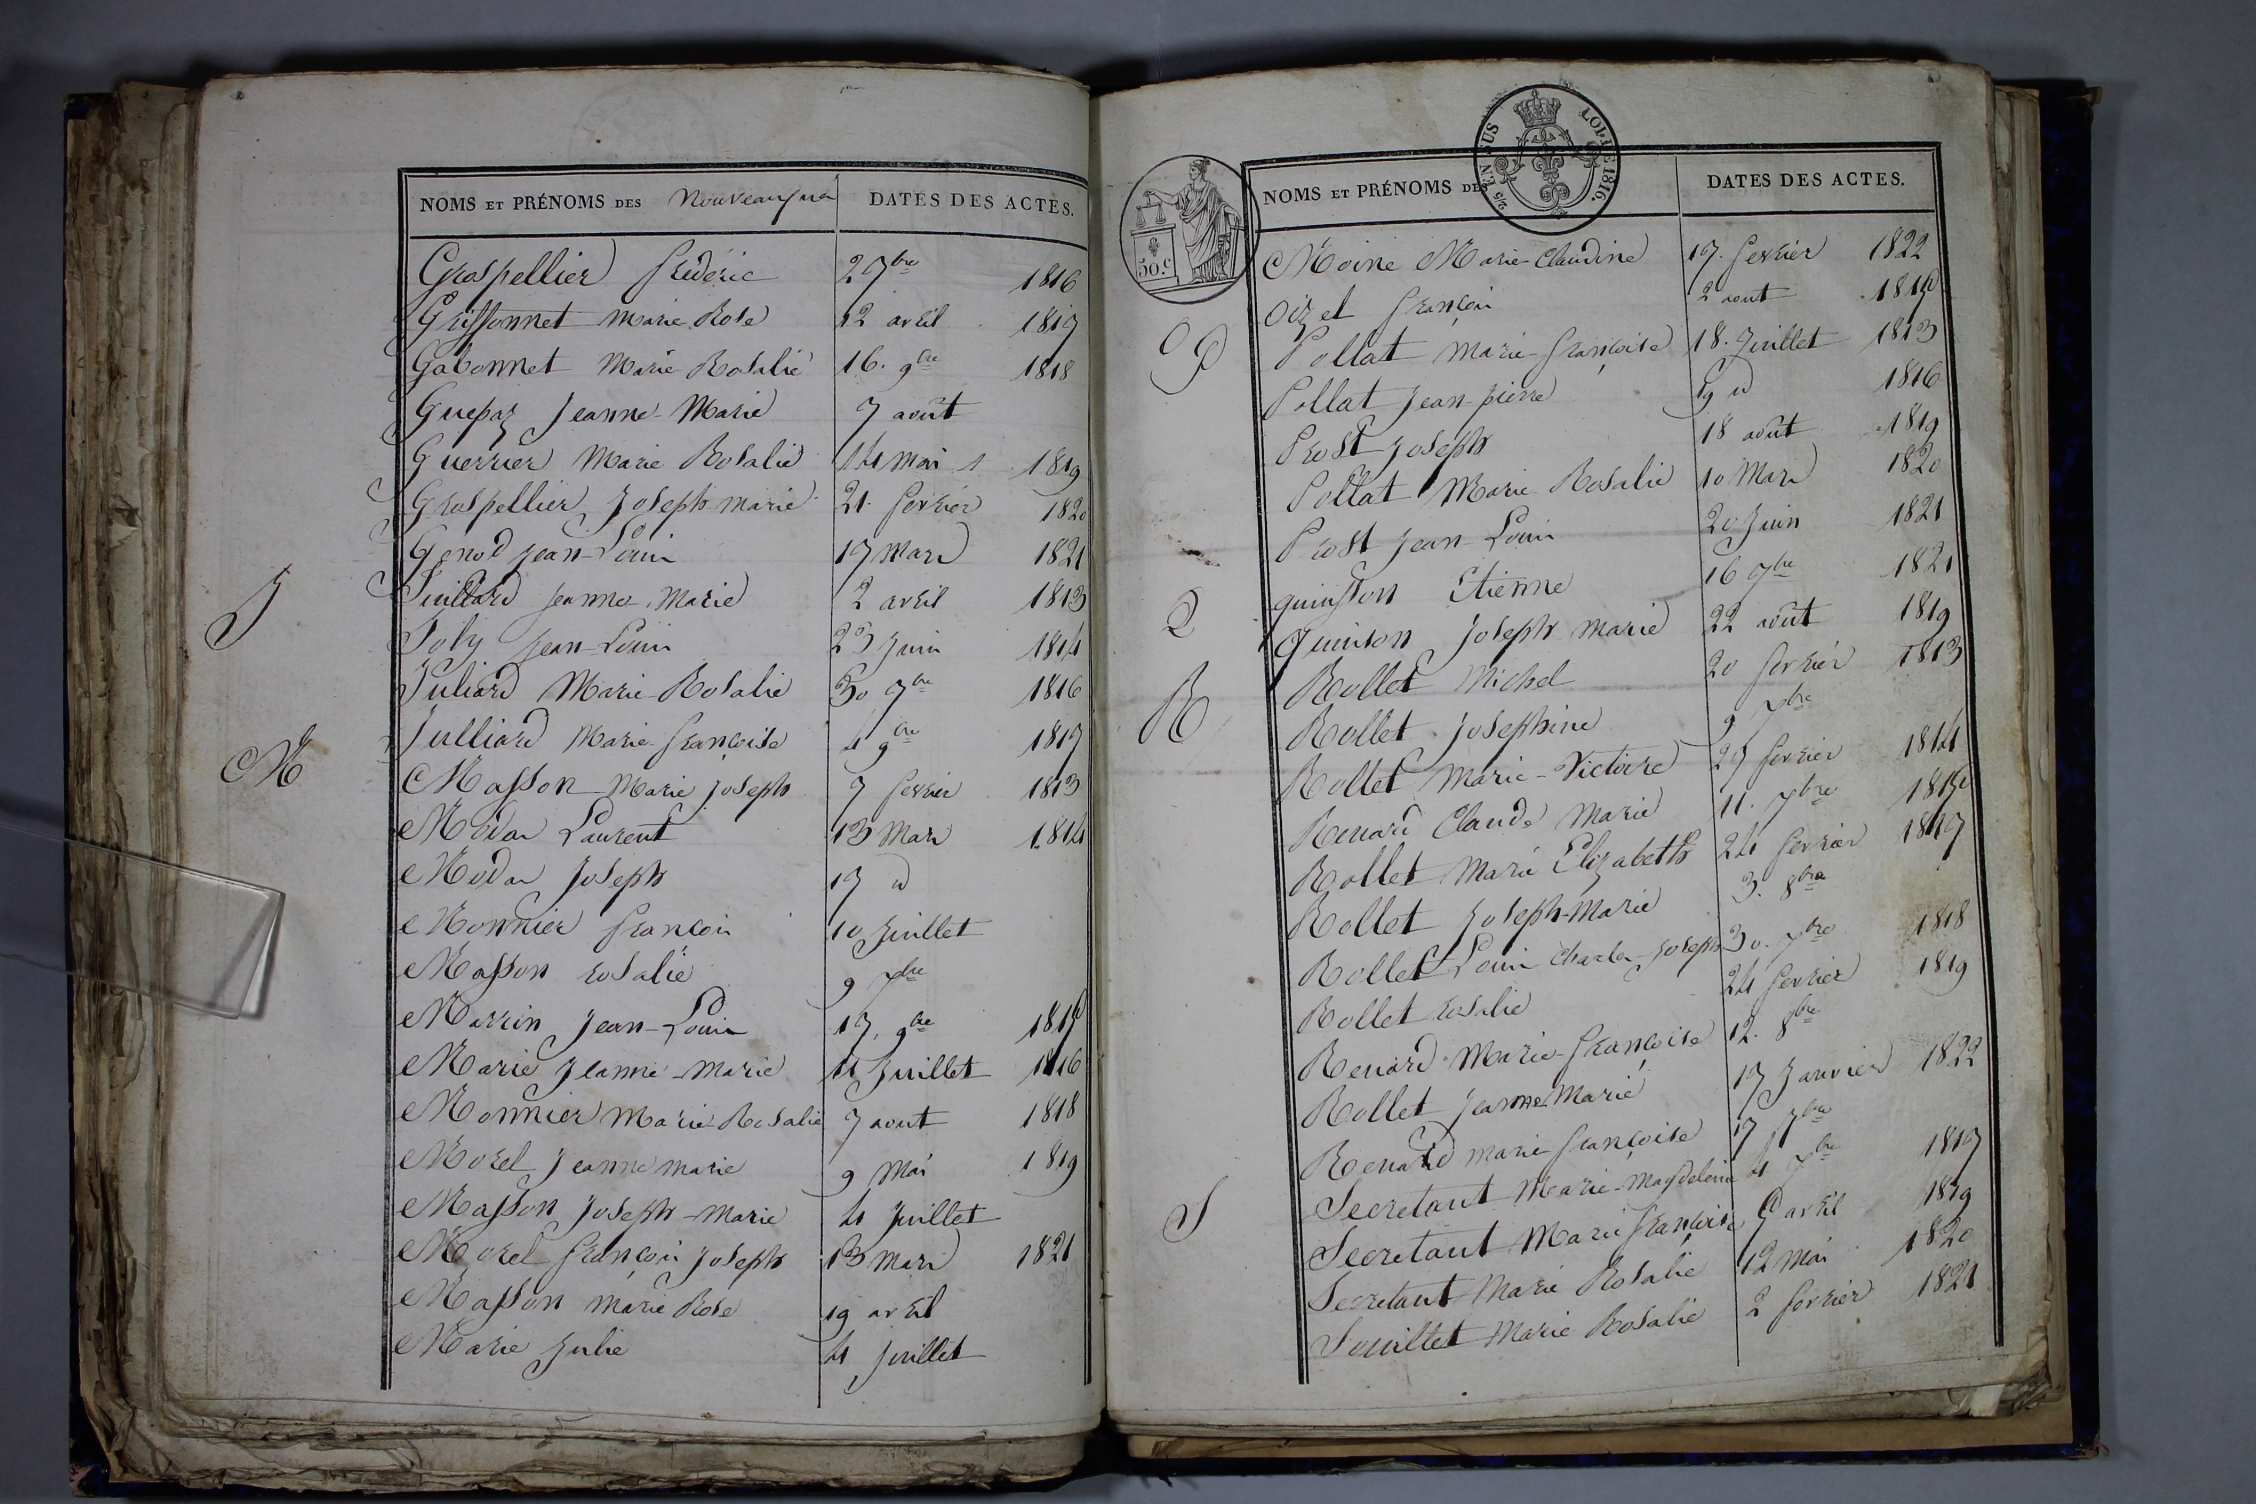 NOMS ET PRÉNOMS DES Nouveaux nés DATES DES ACTES.
Graspellier frédéric 2 7bre 1816
Grissonnet Marie Rose 12 avril 1817
Gabonnet Marie Rosalie 16. 9bre 1818
Guepaz Jeanne Marie 7 août
Guerrier Marie Rosalie 14 Mai 1819
Graspellier Joseph marie 21. fevrier 1820
Genod Jean-Louis 17 Mars 1821
J
Juillard Jeanne Marie 2 avril 1813
Joly Jean-Louis 23 Juin 1814
Juliard Marie-Rosalie 30 7bre 1816
Julliard Marie-françoise 4 9bre 1817
M
Masson Marie Joseph 7 fevrier 1813
Modas Laurent 13 Mars 1814
Modas Joseph 17 d
Monnier françois 10 Juillet
Masson rosalie 9 7bre
Marrin Jean-Louis 17. 9bre 1815
Marie Jeanne-marie 4 Juillet 1816
Monnier Marie Rosalie 7 aout 1818
Morel Jeanne marie 9 Mai 1819
Masson Joseph-Marie 4 Juillet
Morel françois Joseph 13 Mars 1821
Masson marie Rose 19 avril
Marie Julie 4 Juillet
50.c
2/5 EN SUS
LOI DE 1816.
NOMS ET PRÉNOMS DES DATES DES ACTES.
Moine Marie-Claudine 17. fevrier 1822
O
Oizel françois 2 aout 1815
P
Pollat Marie-françoise 18. Juillet 1813
Pollat Jean-pierre 19 d 1816
Prost Joseph 18 août 1819
Pollat Marie Rosalie 10 Mars 1820
Prost Jean-Louis 20 Juin 1821
Q
quinsson Etienne 16 7bre 1821
quinson Joseph Marie 22 août 1819
R
Rollet Michel 20 fevrier 1813
Rollet Josephine 9 7bre
Rollet Marie-Victoire 27 fevrier 1814
Renard Claude Marie 11. 7bre 1815
Rollet Marie Elizabeth 24 fevrier 1817
Rollet Joseph-Marie 3. 8bre
Rollet Louis Charles-Joseph 30. 7bre 1818
Rollet rosalie 24 fevrier 1819
Renard Marie-françoise 12. 8bre
Rollet Jeanne Marie 17 Janvier 1822
Renard marie françoise 17 7bre
S
Secretant Marie-Magdelene 4 7bre 1817
Secretant Marie françoise 5 avril 1819
Secretant Marie Rosalie 12 Mai 1820
Souillet Marie Rosalie 2 fevrier 1821